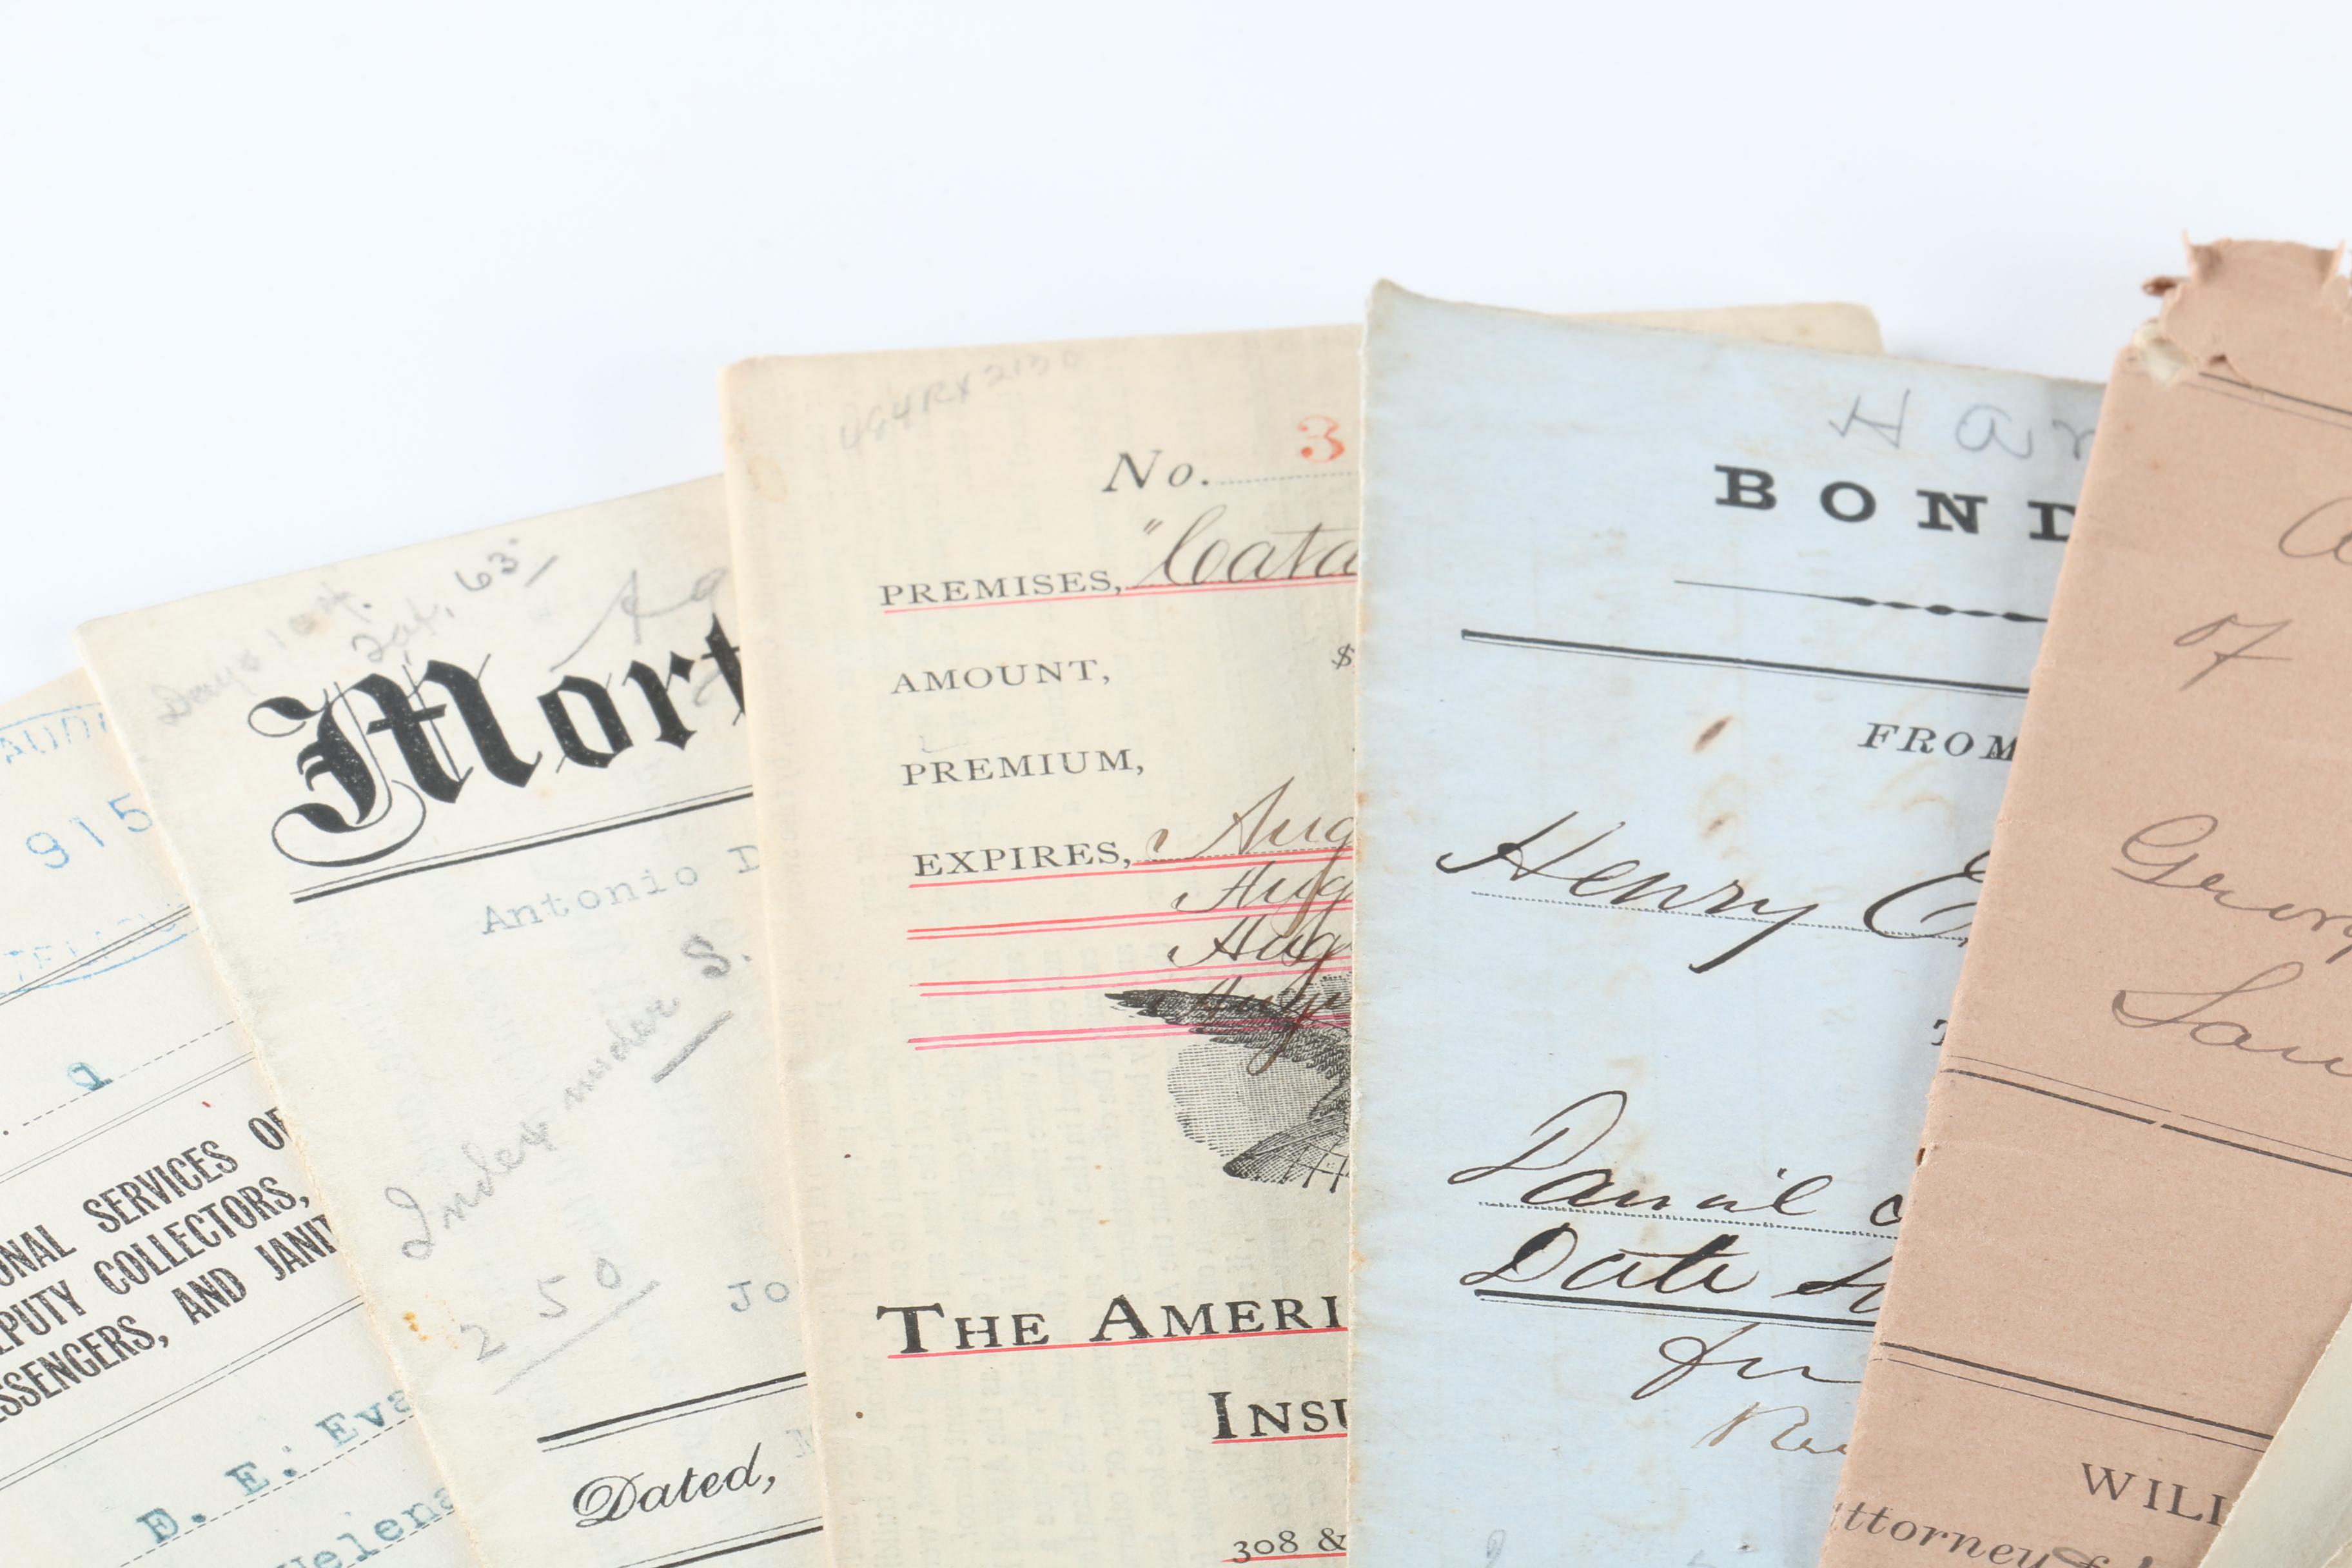 915
a
ONAL SERVICES OF
EPUTY COLLECTORS,
ESSENGERS, AND JANIT
E. E. Eva
Helena
63
Mort
Antonio D
Index under S.
250
Jo
Dated,
No. 3
PREMISES, "Cata
AMOUNT, $
PREMIUM,
EXPIRES, Aug
Aug
Aug
THE AMERI
INSU
308 &
Har
BOND
FROM
Henry E
T
Daniel
Date
of
Georg
WILL
Attorney